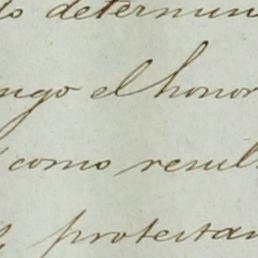 do determin
ngo el honor
como resul
protestan